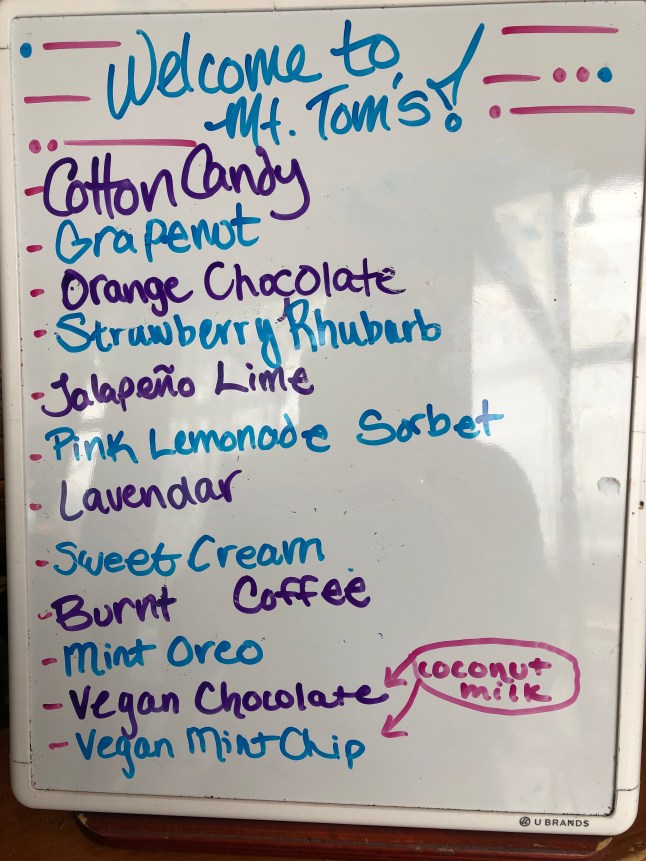 Welcome to
Mt. Tom's!
- Cotton Candy
- Grapenut
- Orange Chocolate
- Strawberry Rhubarb
- Jalapeño Lime
- Pink Lemonade Sorbet
- Lavendar
- Sweet Cream
- Burnt Coffee
- Mint Oreo
- Vegan Chocolate
coconut
milk
- Vegan Mint Chip
U BRANDS